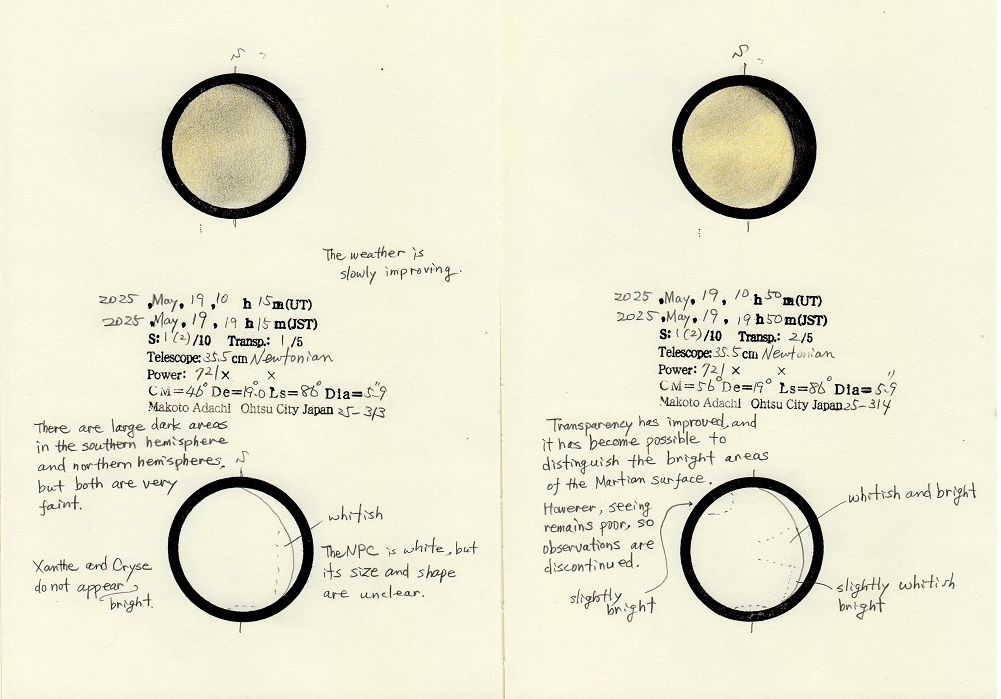 S
The weather is
slowly improving.
2025 . May. 19 , 10 h 15 m (UT)
2025 . May. 19 , 19 h 15 m (JST)
S: 1 (2) /10 Transp.: 1 /5
Telescope: 35.5 cm Newtonian
Power: 721 × ×
CM=46° De=19.0° Ls=86° Dia=5."9
Makoto Adachi Ohtsu City Japan 25-313
There are large dark areas
in the southern hemisphere
and northern hemispheres,
but both are very
faint.
S
whitish
The NPC is white, but
its size and shape
are unclear.
Xanthe and Cryse
do not appear
bright.
S
2025 . May. 19 , 10 h 50 m (UT)
2025 . May. 19 , 19 h 50 m (JST)
S: 1 (2) /10 Transp.: 2 /5
Telescope: 35.5 cm Newtonian
Power: 721 × ×
CM=56° De=19° Ls=86° Dia=5."9
Makoto Adachi Ohtsu City Japan 25-314
Transparency has improved, and
it has become possible to
distinguish the bright areas
of the Martian surface.
However, seeing
remains poor, so
observations are
discontinued.
slightly
bright
whitish and bright
slightly whitish
bright